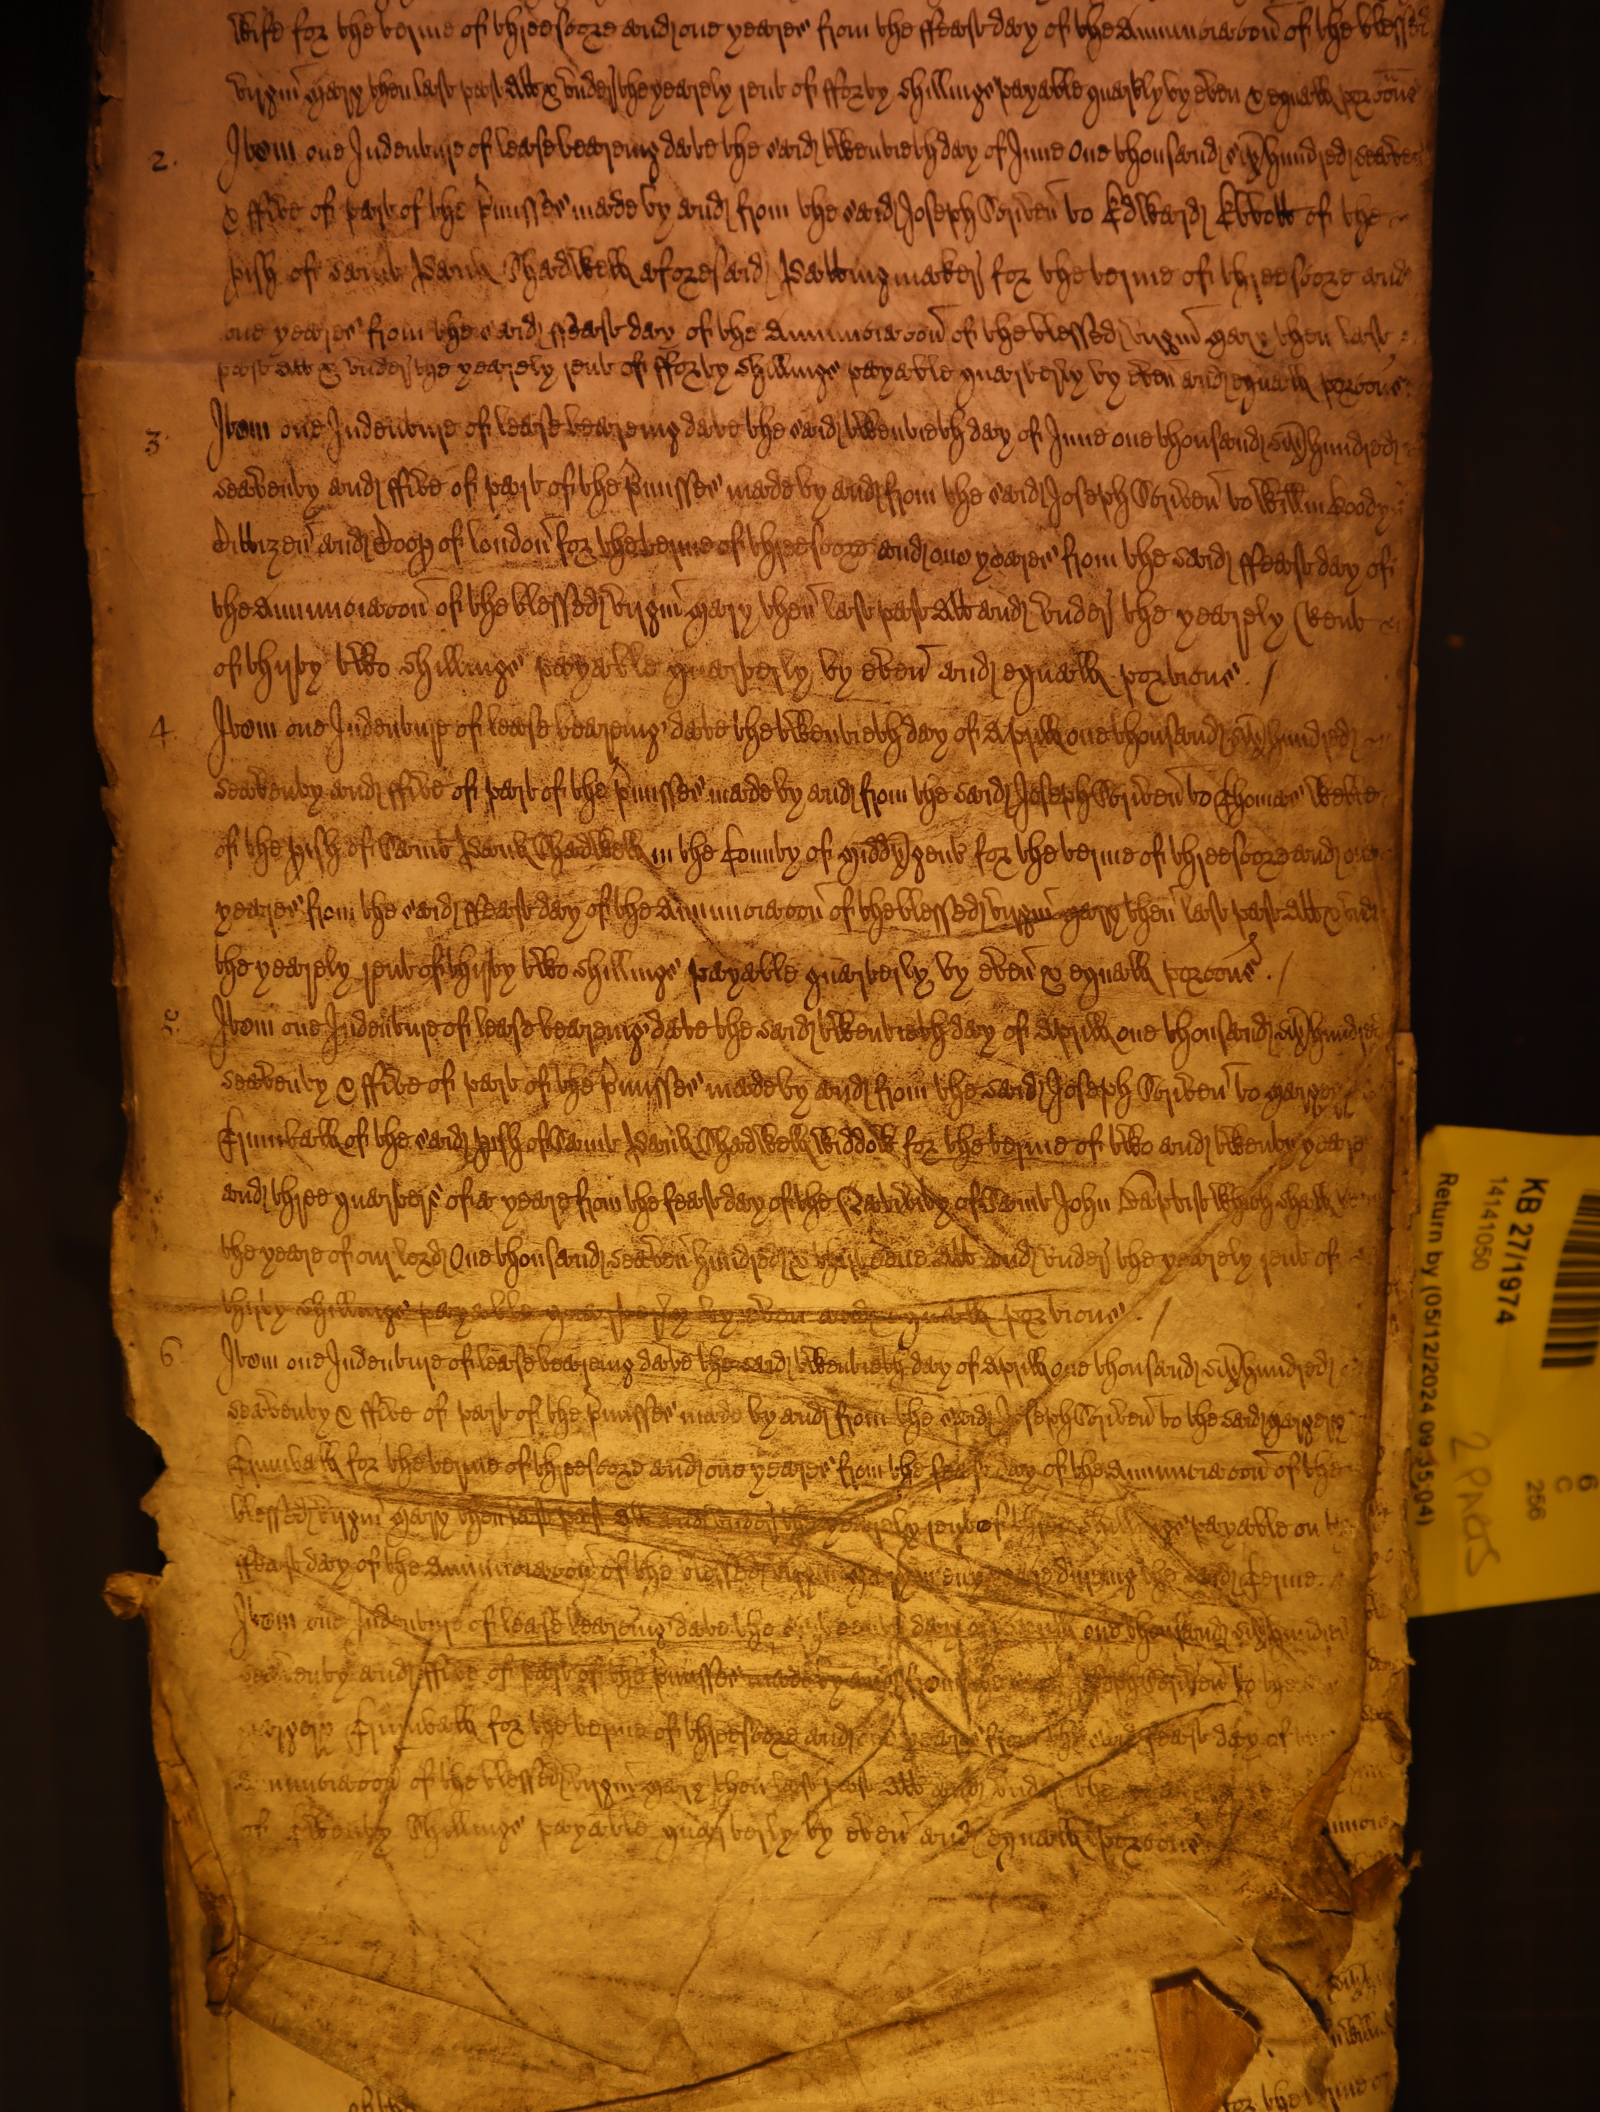 wife for the terme of threescore and one yeares from the ffeast day of the Annunciacon of the blessed
virgin Mary then last past Att & under the yearely rent of fforty shillings payable quarterly by even & equall porcons
2. Item one Indenture of lease beareing date the said twentieth day of June One thousand six hundred seaventy
& ffive of part of the pmisses made by and from the said Joseph Scriven to Edward Ebbott of the
pish of Saint Paul Shadwell aforesaid Pattinmaker for the terme of threescore and
one yeares from the said ffeast day of the Annunciacon of the blessed virgin Mary then last
past Att & under the yearely rent of fforty shillings payable quarterly by even and equall porcons
3. Item one Indenture of lease beareing date the said twentieth day of June one thousand six hundred
seaventy and ffive of part of the pmisses made by and from the said Joseph Scriven to Willm
Cittizen and of London for the terme of threescore and one yeares from the said ffeast day of
the Annunciacon of the blessed virgin Mary then last past Att and under the yearely Rent
of thirty two shillings payable quarterly by even and equall portions. /
4. Item one Indenture of lease beareing date the twentieth day of Aprill one thousand six hundred
seaventy and ffive of part of the pmisses made by and from the said Joseph Scriven to Thomas
of the pish of Saint Paul Shadwell in the County of Middx gent for the terme of threescore and one
yeares from the said ffeast day of the Annunciacon of the blessed virgin Mary then last past Att & under
the yearely rent of thirty two shillings payable quarterly by even & equall porcons. /
5 Item one Indenture of lease beareing date the said twentieth day of Aprill one thousand six hundred
seaventy & ffive of part of the pmisses made by and from the said Joseph Scriven to Margery
Trumball of the said pish of Saint Paul Shadwell Widdow for the terme of two and twenty yeares
and three quarters of a yeare from the feast day of the Nativity of Saint John Baptist which shall
the yeare of our lord One thousand seaven hundred & Att and under the yearely rent of
thirty shillings payable quarterly by even and equall portions. /
6 Item one Indenture of lease beareing date the said twentieth day of Aprill one thousand six hundred
seaventy & ffive of part of the pmisses made by and from the said Joseph Scriven to the said Margery
Trumball for the terme of threescore and one yeares from the feast day of the Annunciacon of the
blessed virgin Mary then last past Att and under the yearely rent of shillings payable on
ffeast day of the Annunciacon of the blessed virgin Mary dureing the said terme.
Item one Indenture of lease beareing date the day of one thousand six hundred
seaventy and ffive of part of the pmisses made by and from Joseph Scriven to
Margery Trumball for the terme of threescore and one yeares from the said feast day of
Annunciacon of the blessed virgin Mary then last past Att and under the
of twenty Shillings payable quarterly by even and equall porcons
KB 27/1974
14141050
Return by (05/12/2024 09:35:04)
6
C
256
2 PARTS